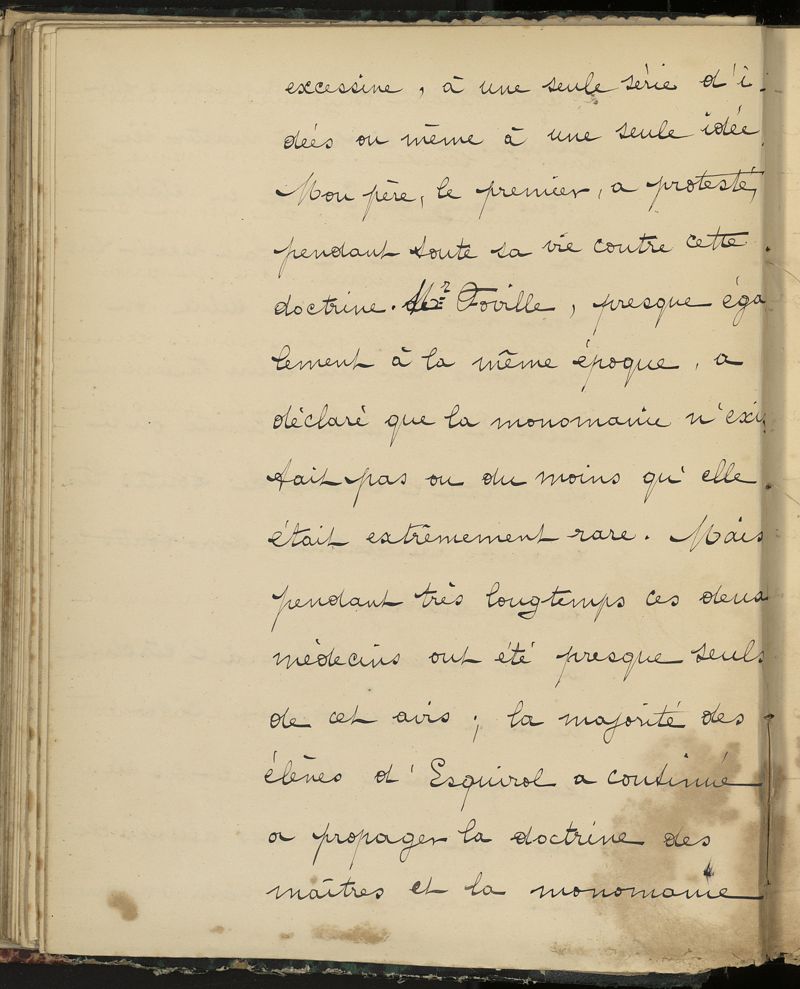 excessive, à une seule série d'i-
dées ou même à une seule idée.
Mon père, le premier, a protesté,
pendant toute sa vie contre cette
doctrine. Mr Foville, presque éga
lement à la même époque, a
déclaré que la monomanie n'exis
tait pas ou du moins qu'elle
était extrêmement rare. Mais
pendant très longtemps ces deux
médecins ont été presque seuls
de cet avis ; la majorité des
élèves d'Esquirol a continué
a propager la doctrine des
maîtres et la monomanie